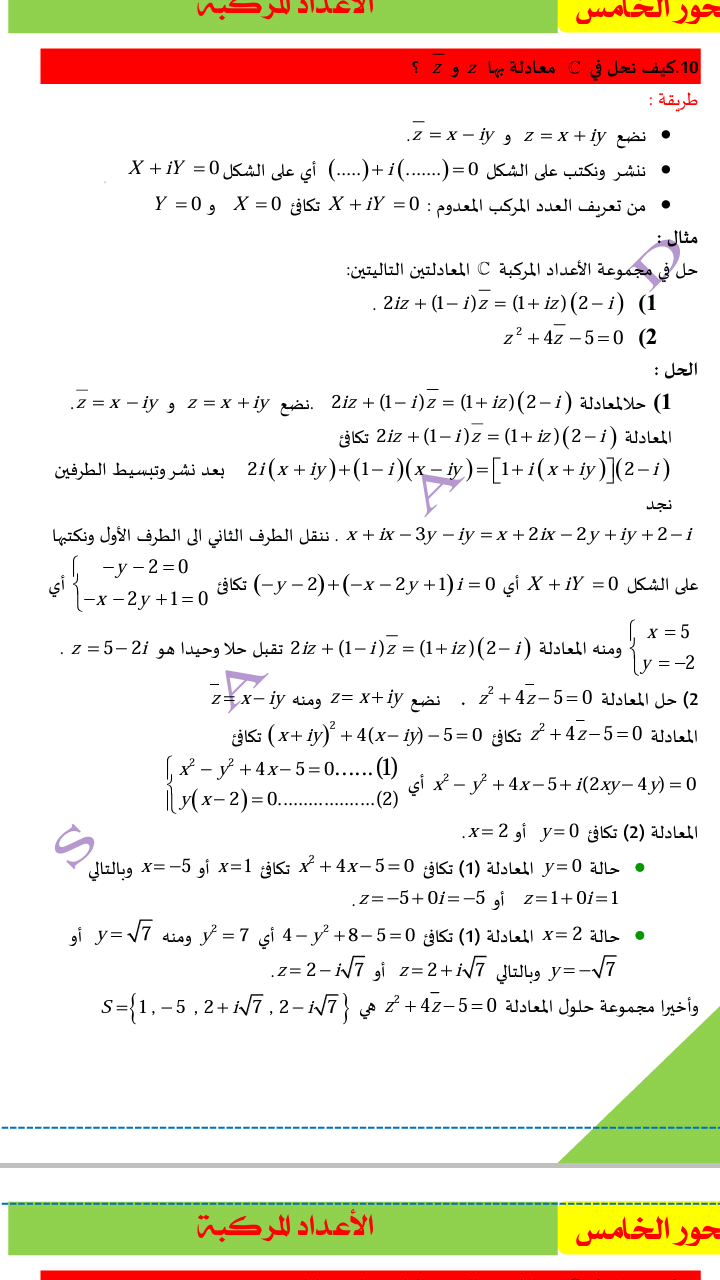 حور الخامس
الأعداد المركبة
10.كيف نحل في ℂ معادلة بها z و z̄ ؟
طريقة :
• نضع z = x + iy و z̄ = x − iy.
• ننشر ونكتب على الشكل (.....) + i(.......) = 0 أي على الشكل X + iY = 0
• من تعريف العدد المركب المعدوم : X + iY = 0 تكافئ X = 0 و Y = 0
مثال :
حل في مجموعة الأعداد المركبة ℂ المعادلتين التاليتين:
1) 2iz + (1 − i)z̄ = (1 + iz)(2 − i) .
2) z² + 4z̄ − 5 = 0
الحل :
1) حلالمعادلة 2iz + (1 − i)z̄ = (1 + iz)(2 − i) .نضع z = x + iy و z̄ = x − iy.
المعادلة 2iz + (1 − i)z̄ = (1 + iz)(2 − i) تكافئ
2i(x + iy) + (1 − i)(x − iy) = [1 + i(x + iy)](2 − i) بعد نشر وتبسيط الطرفين
نجد
x + ix − 3y − iy = x + 2ix − 2y + iy + 2 − i . ننقل الطرف الثاني الى الطرف الأول ونكتبها
على الشكل X + iY = 0 أي (−y − 2) + (−x − 2y + 1)i = 0 تكافئ { −y − 2 = 0 ; −x − 2y + 1 = 0 أي
{ x = 5 ; y = −2 ومنه المعادلة 2iz + (1 − i)z̄ = (1 + iz)(2 − i) تقبل حلا وحيدا هو z = 5 − 2i .
2) حل المعادلة z² + 4z̄ − 5 = 0 . نضع z = x + iy ومنه z̄ = x − iy
المعادلة z² + 4z̄ − 5 = 0 تكافئ (x + iy)² + 4(x − iy) − 5 = 0 تكافئ
x² − y² + 4x − 5 + i(2xy − 4y) = 0 أي { x² − y² + 4x − 5 = 0......(1) ; y(x − 2) = 0..................(2)
المعادلة (2) تكافئ y = 0 أو x = 2.
• حالة y = 0 المعادلة (1) تكافئ x² + 4x − 5 = 0 تكافئ x = 1 أو x = −5 وبالتالي
z = 1 + 0i = 1 أو z = −5 + 0i = −5.
• حالة x = 2 المعادلة (1) تكافئ 4 − y² + 8 − 5 = 0 أي y² = 7 ومنه y = √7 أو
y = −√7 وبالتالي z = 2 + i√7 أو z = 2 − i√7.
وأخيرا مجموعة حلول المعادلة z² + 4z̄ − 5 = 0 هي S = {1 , −5 , 2 + i√7 , 2 − i√7}
S A A D
حور الخامس
الأعداد المركبة